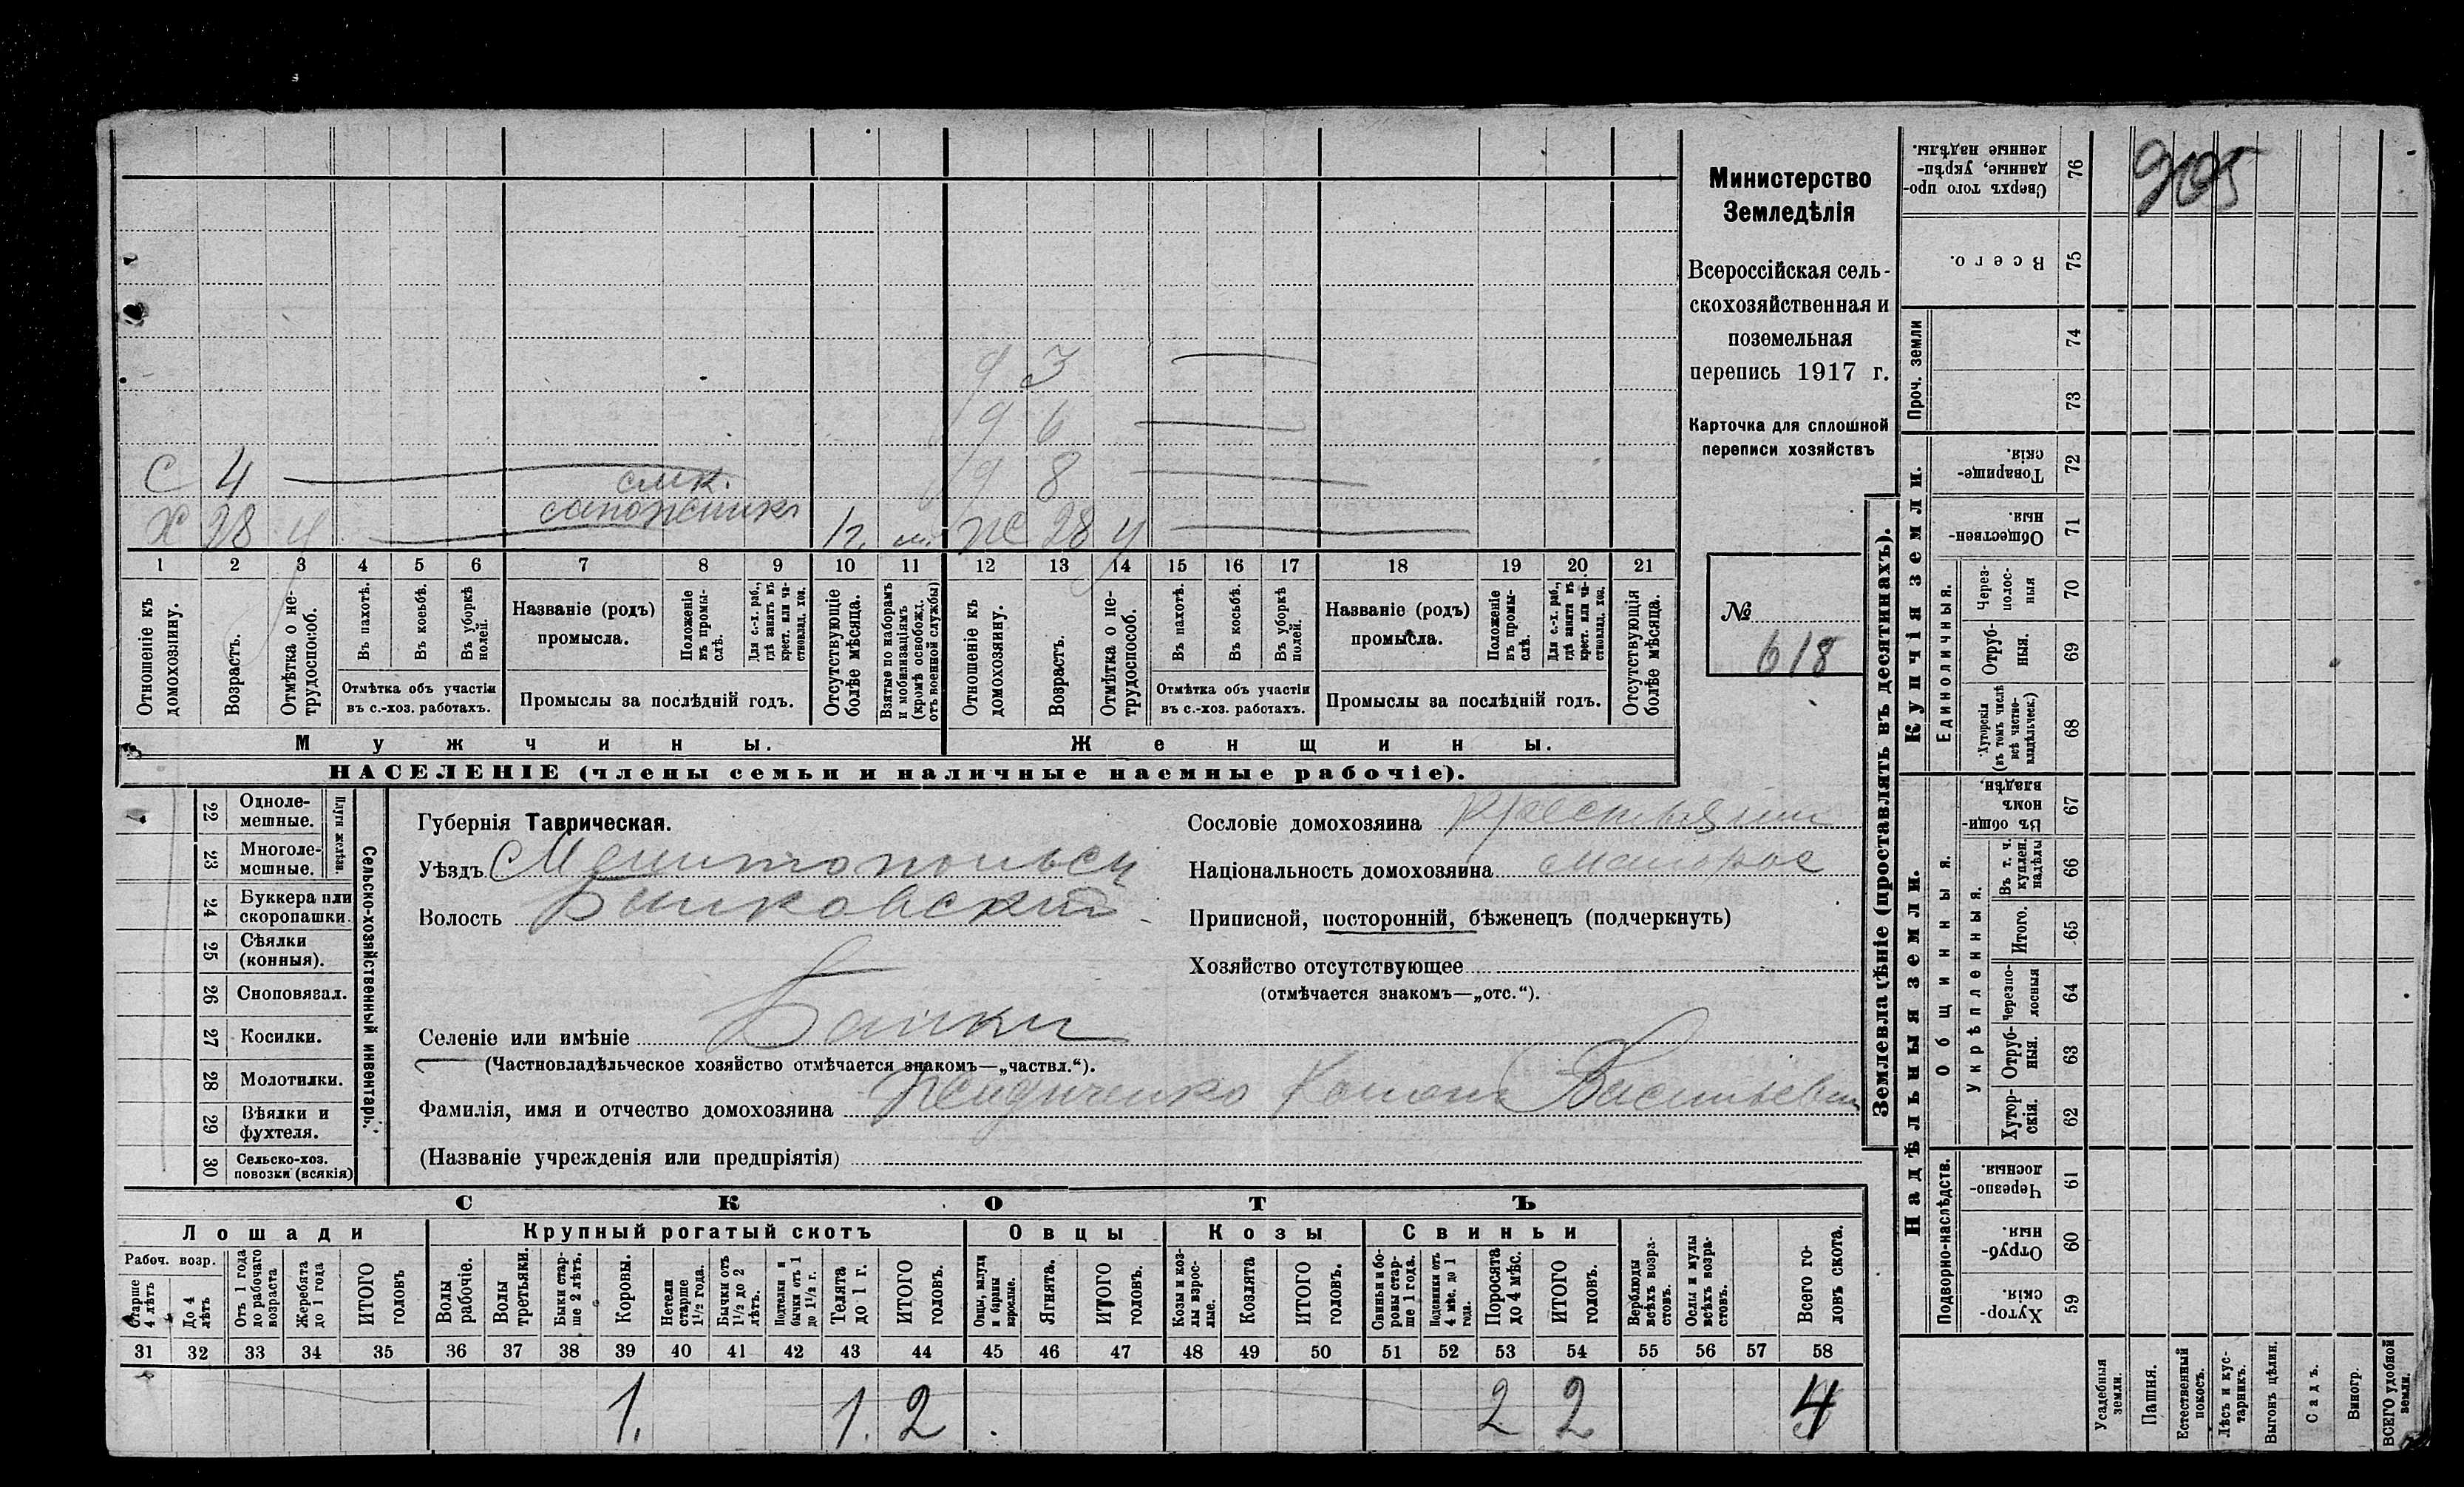 905
Министерство
Земледѣлія
Всероссійская сель-
скохозяйственная и
поземельная
перепись 1917 г.
Карточка для сплошной
переписи хозяйствъ
№
618
3
6
С 4
8
сапожникъ
Х 28 1 г. Ж 28
1 2 3 4 5 6 7 8 9 10 11 12 13 14 15 16 17 18 19 20 21
Отношеніе къ домохозяину.
Возрастъ.
Отмѣтка о не-трудоспособ.
Въ пахотѣ.
Въ косьбѣ.
Въ уборкѣ полей.
Отмѣтка объ участіи
въ с.-хоз. работахъ.
Названіе (родъ)
промысла.
Положеніе въ промы-слѣ.
Для с.-х. раб., гдѣ занятъ въ крест. или ча-стновлад. хоз.
Промыслы за послѣдній годъ.
Отсутствующіе болѣе мѣсяца.
Взятые по наборамъ и мобилизаціямъ (кромѣ освобожд. отъ военной службы)
Отношеніе къ домохозяину.
Возрастъ.
Отмѣтка о не-трудоспособ.
Въ пахотѣ.
Въ косьбѣ.
Въ уборкѣ полей.
Отмѣтка объ участіи
въ с.-хоз. работахъ.
Названіе (родъ)
промысла.
Положеніе въ промы-слѣ.
Для с.-х. раб., гдѣ занята въ крест. или ча-стновлад. хоз.
Промыслы за послѣдній годъ.
Отсутствующія болѣе мѣсяца.
Мужчины.
Женщины.
НАСЕЛЕНІЕ (члены семьи и наличные наемные рабочіе).
22 Одноле-мешные.
23 Многоле-мешные.
Плуги желѣзн.
24 Буккера или скоропашки.
25 Сѣялки (конныя).
26 Сноповязал.
27 Косилки.
28 Молотилки.
29 Вѣялки и фухтеля.
30 Сельско-хоз. повозки (всякія)
Сельско-хозяйственный инвентарь.
Губернія Таврическая.
Уѣздъ Мелитопольск
Волость
Селеніе или имѣніе Балки
(Частновладѣльческое хозяйство отмѣчается знакомъ—„частвл.“).
Фамилія, имя и отчество домохозяина Васильевич
(Названіе учрежденія или предпріятія)
Сословіе домохозяина Крестьянин
Національность домохозяина малорос
Приписной, посторонній, бѣженецъ (подчеркнуть)
Хозяйство отсутствующее
(отмѣчается знакомъ—„отс.“).
СКОТЪ
Лошади
Крупный рогатый скотъ
Овцы
Козы
Свиньи
Рабоч. возр.
Старше 4 лѣтъ
До 4 лѣтъ
Отъ 1 года до рабочаго возраста
Жеребята до 1 года
ИТОГО головъ
Волы рабочіе.
Волы третьяки.
Быки стар-ше 2 лѣтъ.
Коровы.
Нетели старше 1½ года.
Бычки отъ 1½ до 2 лѣтъ.
Подтелки и бычки отъ 1 до 1½ г.
Телята до 1 г.
ИТОГО головъ.
Овцы, валухи и бараны взрослые.
Ягнята.
ИТОГО головъ.
Козы и коз-лы взрос-лые.
Козлята
ИТОГО головъ.
Свиньи и бо-ровы стар-ше 1 года.
Подсвинки отъ 4 мѣс. до 1 года.
Поросята до 4 мѣс.
ИТОГО головъ.
Верблюды всѣхъ возра-стовъ.
Ослы и мулы всѣхъ возра-стовъ.
Всего го-ловъ скота.
31 32 33 34 35 36 37 38 39 40 41 42 43 44 45 46 47 48 49 50 51 52 53 54 55 56 57 58
1. 1. 2 2 2 4
Землевладѣніе (проставлять въ десятинахъ).
Купчія земли.
Надѣльныя земли.
Сверхъ того про-данные, укрѣп-ленные надѣлы. 76
Всего. 75
Проч. земли 74
73
Товарище-скія. 72
Обществен-ныя. 71
Единоличныя.
Через-полос-ныя 70
Отруб-ныя. 69
Хуторскія (въ томъ числѣ всѣ частно-владѣльческ.) 68
Общинныя.
Въ общи-номъ владѣн. 67
Укрѣпленныя.
Въ т. ч. куплен. надѣлы 66
Итого. 65
Черезпо-лосныя 64
Отруб-ныя. 63
Хутор-скія. 62
Подворно-наслѣдств.
Черезпо-лосныя. 61
Отруб-ныя. 60
Хутор-скія 59
Усадебныя земли.
Пашня.
Естественный покосъ.
Лѣсъ и кус-тарникъ.
Выгонъ цѣлин.
Садъ.
Виногр.
ВСЕГО удобной земли.